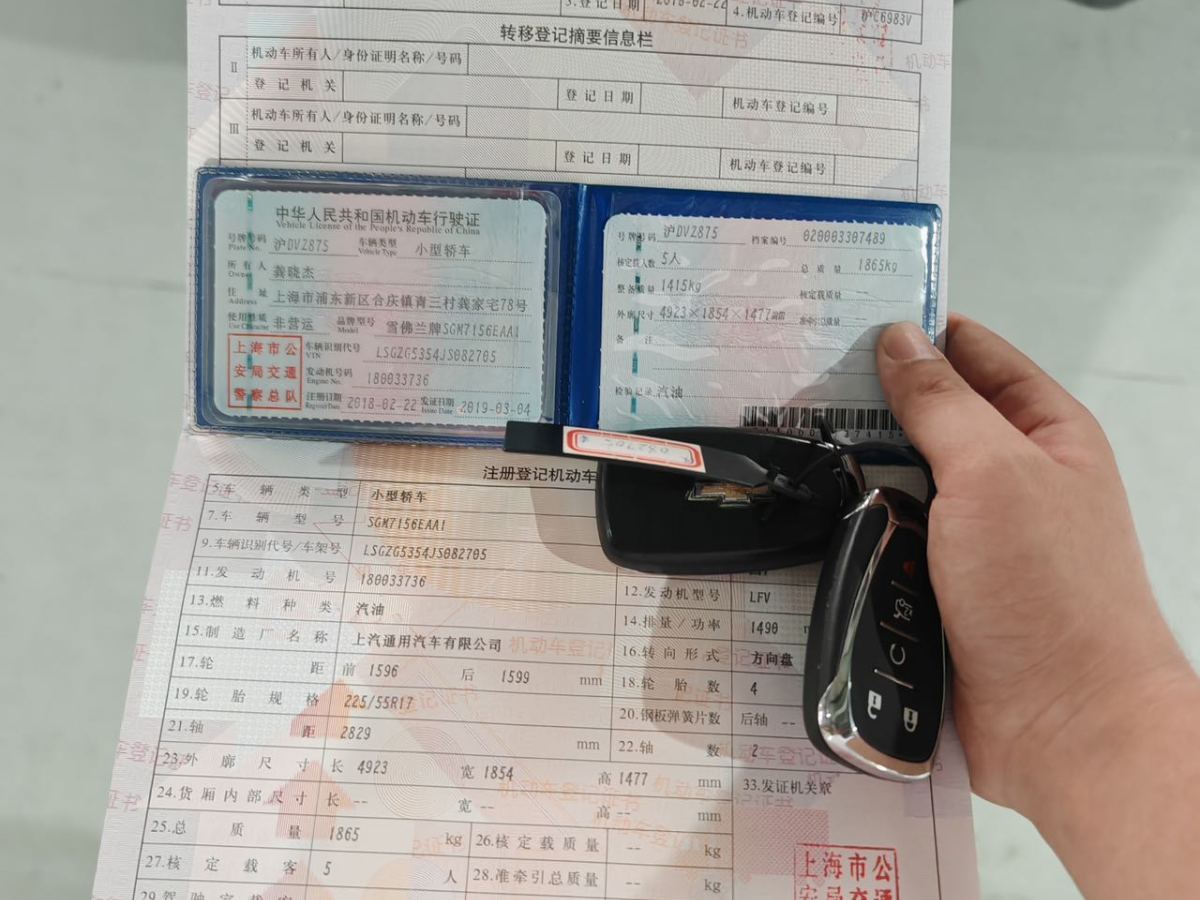 3.登记日期 2018-02-22 4.机动车登记编号 沪C6983V
转移登记摘要信息栏
II 机动车所有人/身份证明名称/号码
登记机关 登记日期 机动车登记编号
III 机动车所有人/身份证明名称/号码
登记机关 登记日期 机动车登记编号
中华人民共和国机动车行驶证
Vehicle License of the People's Republic of China
号牌号码 沪DV2875 车辆类型 小型轿车
Plate No. Vehicle Type
所有人 龚晓杰
Owner
住址 上海市浦东新区合庆镇青三村龚家宅78号
Address
使用性质 非营运 品牌型号 雪佛兰牌SGM7156EAA1
Use Character Model
上海市公安局交通警察总队
车辆识别代号 LSGZG5354JS082705
VIN
发动机号码 180033736
Engine No.
注册日期 2018-02-22 发证日期 2019-03-04
Register Date Issue Date
号牌号码 沪DV2875 档案编号 020003307489
核定载人数 5人 总质量 1865kg
整备质量 1415kg 核定载质量
外廓尺寸 4923×1854×1477mm 准牵引总质量
备注
检验记录 汽油
注册登记机动车
5.车辆类型 小型轿车
7.车辆型号 SGM7156EAA1
9.车辆识别代号/车架号 LSGZG5354JS082705
11.发动机号 180033736 12.发动机型号 LFV
13.燃料种类 汽油 14.排量/功率 1490
15.制造厂名称 上汽通用汽车有限公司 16.转向形式 方向盘
17.轮距 前 1596 后 1599 mm 18.轮胎数 4
19.轮胎规格 225/55R17 20.钢板弹簧片数 后轴 --
21.轴距 2829 mm 22.轴数 2
23.外廓尺寸 长 4923 宽 1854 高 1477 mm 33.发证机关章
24.货厢内部尺寸 长 -- 宽 -- 高 -- mm
25.总质量 1865 kg 26.核定载质量 -- kg
27.核定载客 5 人 28.准牵引总质量 -- kg
上海市公
安局交通